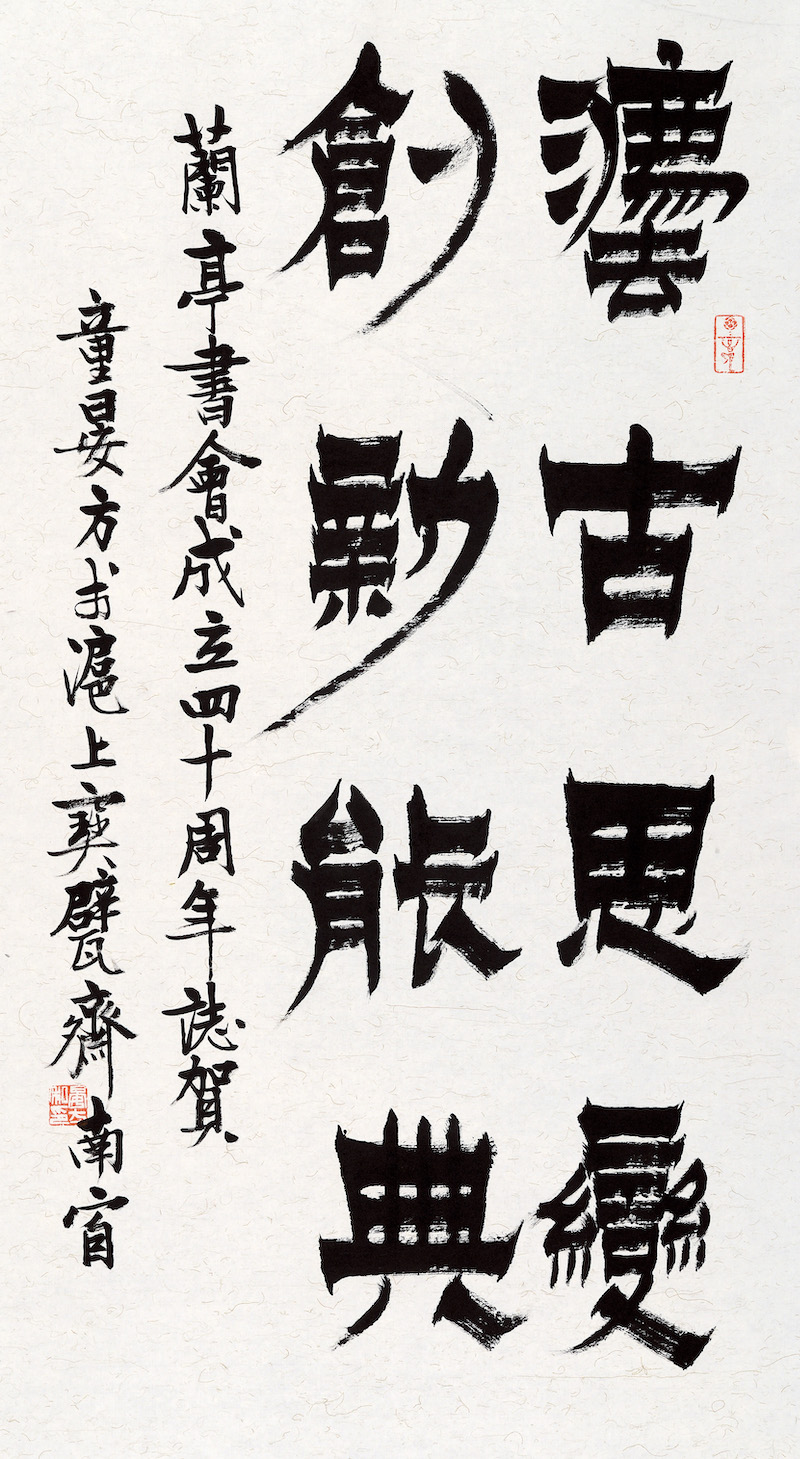 灋古思變
創能典
蘭亭書會成立四十周年誌賀
童晏方书滬上寶甓齋南窗